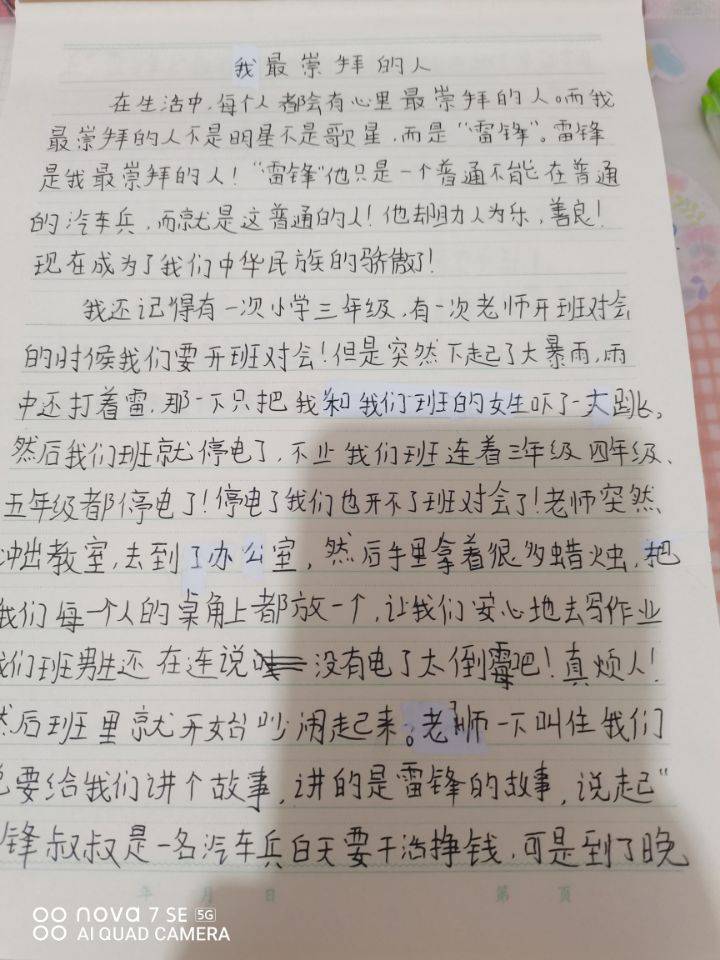 我最崇拜的人
在生活中,每个人都会有心里最崇拜的人。而我
最崇拜的人不是明星不是歌星,而是“雷锋”。雷锋
是我最崇拜的人!“雷锋”他只是一个普通不能在普通
的汽车兵,而就是这普通的人!他却助人为乐,善良!
现在成为了我们中华民族的骄傲了!
我还记得有一次小学三年级,有一次老师开班对会
的时候我们要开班对会!但是突然下起了大暴雨,雨
中还打着雷,那一下只把我和我们班的女生吓了一大跳。
然后我们班就停电了,不止我们班连着三年级四年级、
五年级都停电了!停电了我们也开不了班对会了!老师突然
冲出教室,去到了办公室,然后手里拿着很多蜡烛,把
我们每一个人的桌角上都放一个,让我们安心地去写作业
我们班男生还在连说 没有电了太倒霉吧!真烦人!
然后班里就开始吵闹起来。老师一下叫住我们
说要给我们讲个故事,讲的是雷锋的故事,说起“
锋叔叔是一名汽车兵白天要干活挣钱,可是到了晚
年 月 日 第 页
nova 7 SE 5G
AI QUAD CAMERA